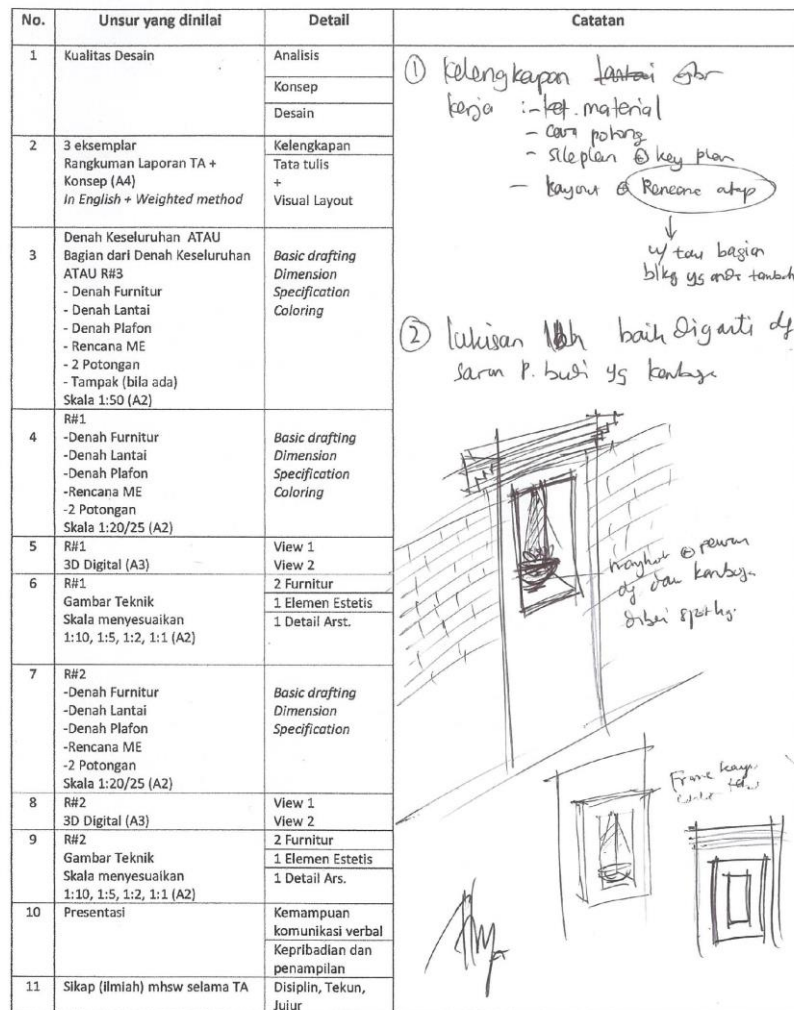 No.
Unsur yang dinilai
Detail
Catatan
1
Kualitas Desain
Analisis
Konsep
Desain
2
3 eksemplar
Rangkuman Laporan TA +
Konsep (A4)
In English + Weighted method
Kelengkapan
Tata tulis
+
Visual Layout
3
Denah Keseluruhan ATAU
Bagian dari Denah Keseluruhan
ATAU R#3
- Denah Furnitur
- Denah Lantai
- Denah Plafon
- Rencana ME
- 2 Potongan
- Tampak (bila ada)
Skala 1:50 (A2)
Basic drafting
Dimension
Specification
Coloring
4
R#1
-Denah Furnitur
-Denah Lantai
-Denah Plafon
-Rencana ME
-2 Potongan
Skala 1:20/25 (A2)
Basic drafting
Dimension
Specification
Coloring
5
R#1
3D Digital (A3)
View 1
View 2
6
R#1
Gambar Teknik
Skala menyesuaikan
1:10, 1:5, 1:2, 1:1 (A2)
2 Furnitur
1 Elemen Estetis
1 Detail Arst.
7
R#2
-Denah Furnitur
-Denah Lantai
-Denah Plafon
-Rencana ME
-2 Potongan
Skala 1:20/25 (A2)
Basic drafting
Dimension
Specification
8
R#2
3D Digital (A3)
View 1
View 2
9
R#2
Gambar Teknik
Skala menyesuaikan
1:10, 1:5, 1:2, 1:1 (A2)
2 Furnitur
1 Elemen Estetis
1 Detail Ars.
10
Presentasi
Kemampuan
komunikasi verbal
Kepribadian dan
penampilan
11
Sikap (ilmiah) mhsw selama TA
Disiplin, Tekun,
Jujur
① kelengkapan gbr
kerja :- ket. material
- cara potong
- siteplan key plan
- layout Rencana atap
bagian
② lukisan baik diganti dg
saran P. budi yg
dg dan
diberi
Frame kayu